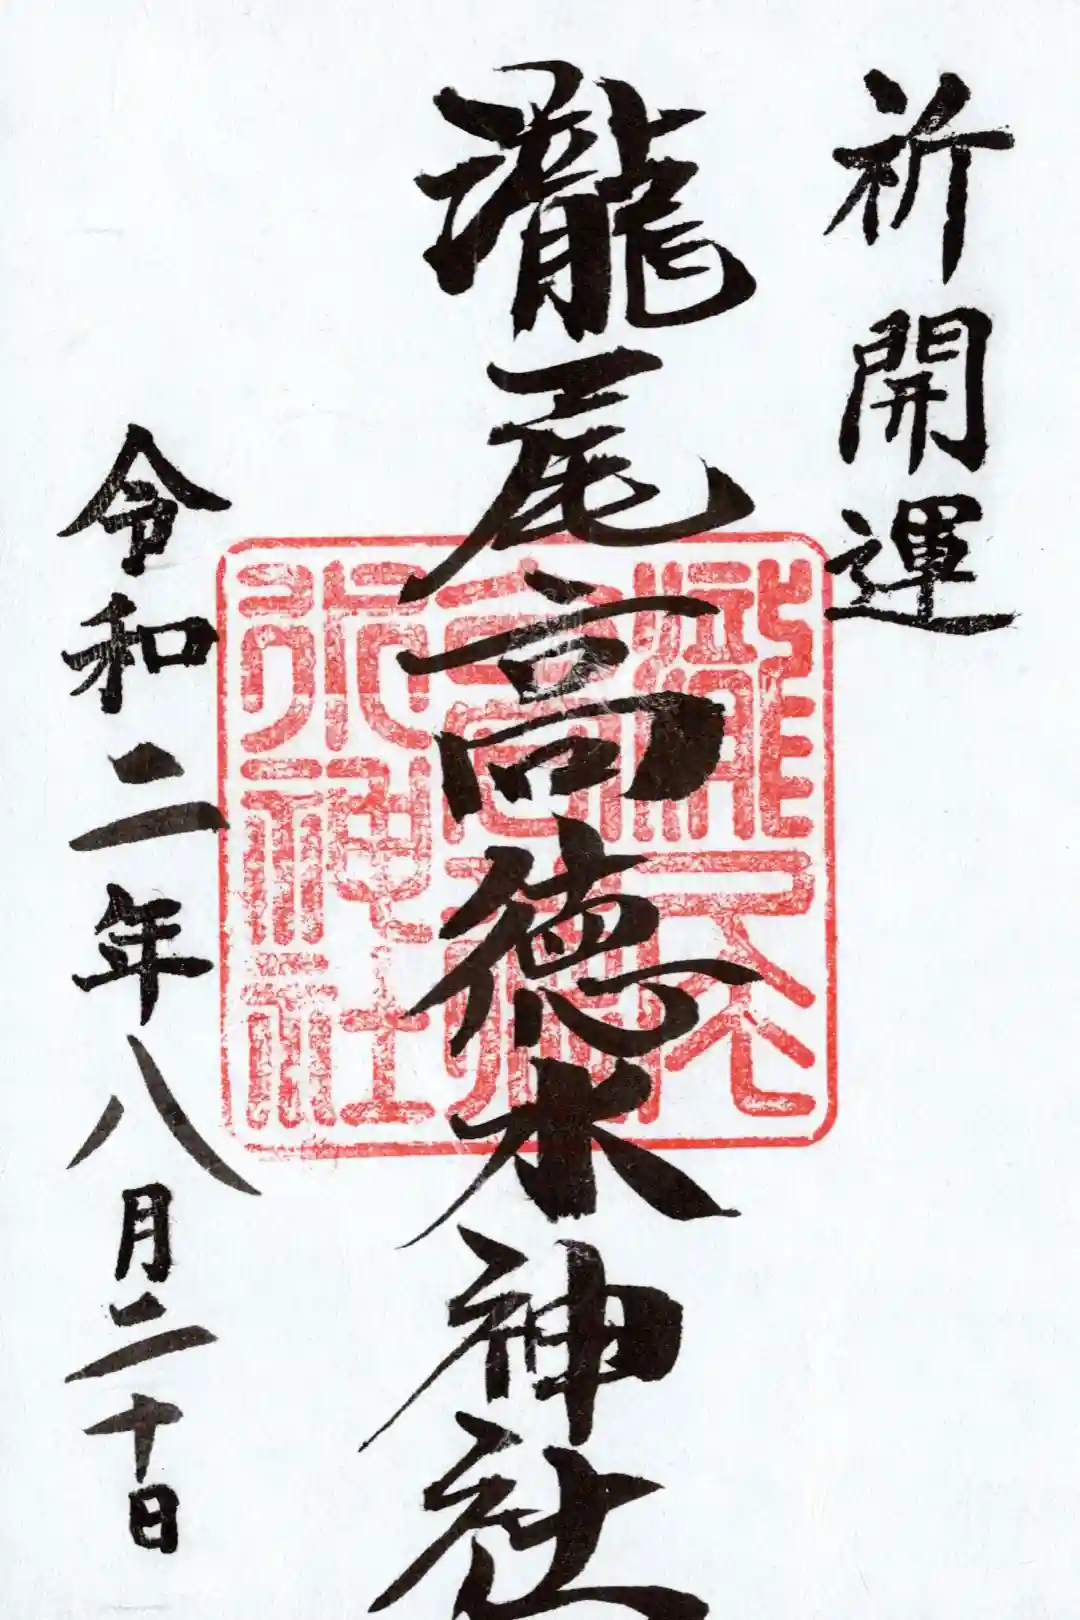 祈開運
瀧尾高徳水神社
令和二年八月二十日
瀧尾
高徳
水神社